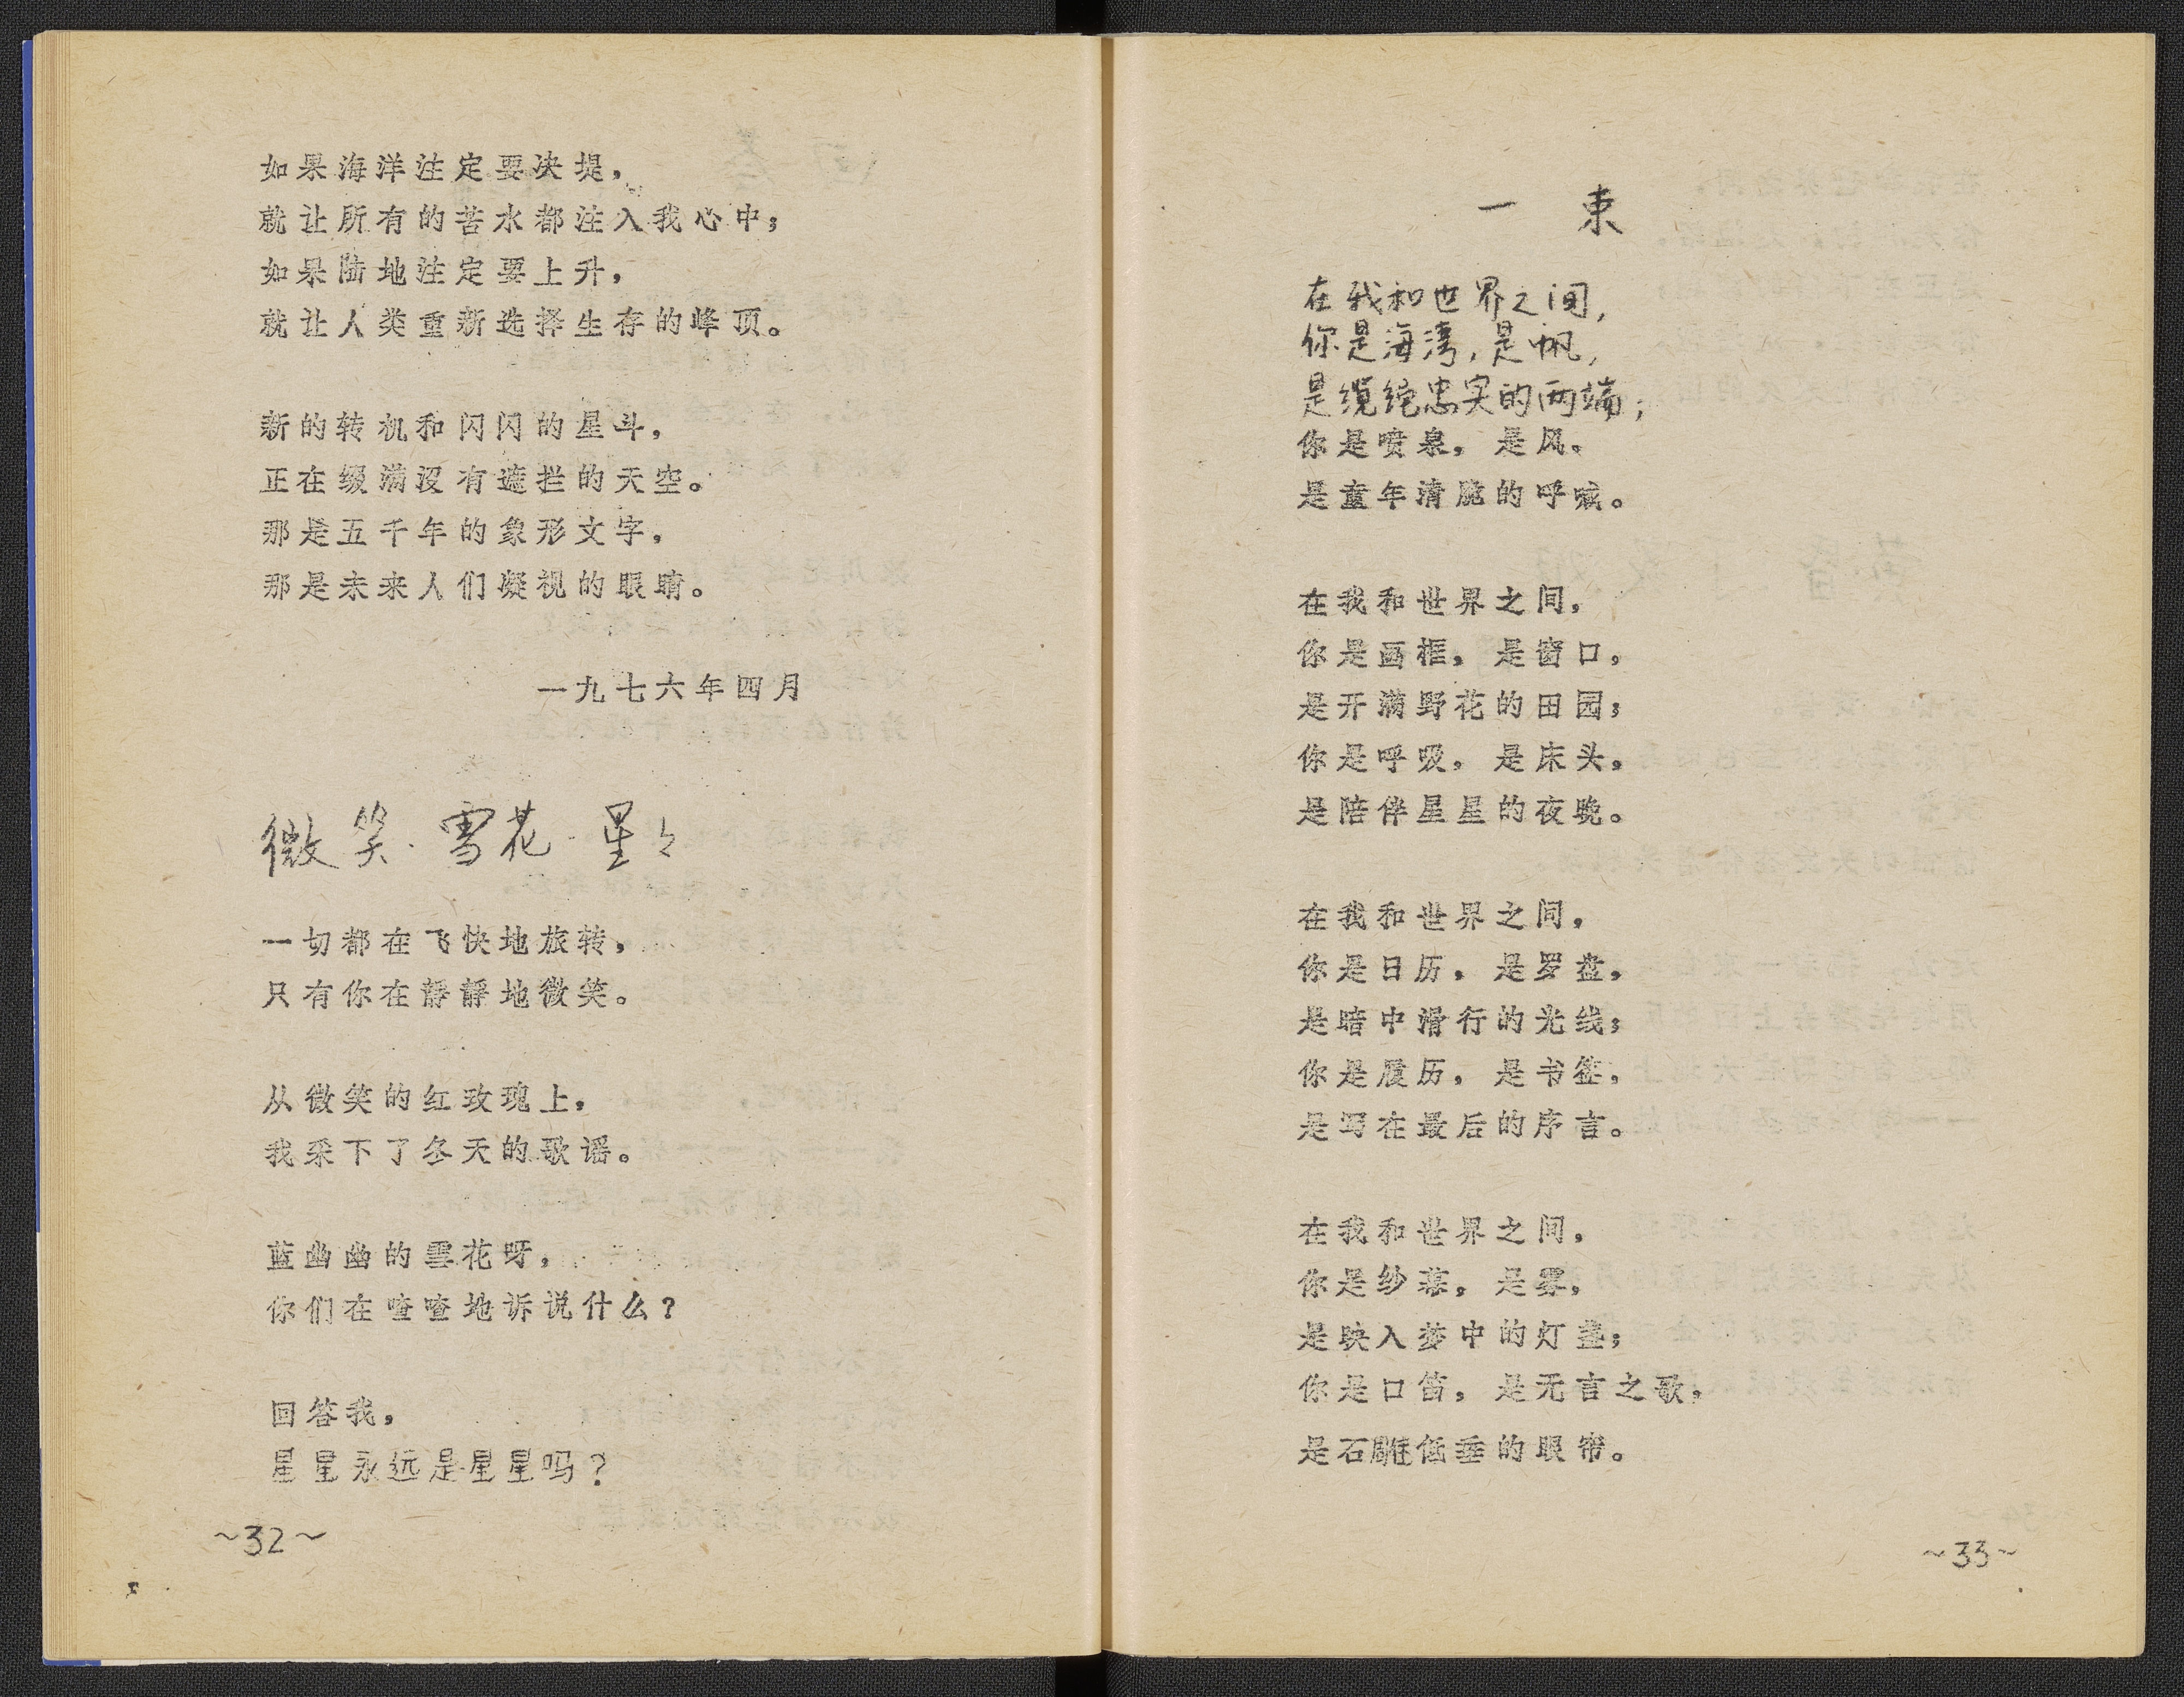 如果海洋注定要决堤，
就让所有的苦水都注入我心中；
如果陆地注定要上升，
就让人类重新选择生存的峰顶。
新的转机和闪闪的星斗，
正在缀满没有遮拦的天空。
那是五千年的象形文字，
那是未来人们凝视的眼睛。
一九七六年四月
微笑·雪花·星々
一切都在飞快地旅转，
只有你在静静地微笑。
从微笑的红玫瑰上，
我采下了冬天的歌谣。
蓝幽幽的雪花呀，
你们在喳喳地诉说什么？
回答我，
星星永远是星星吗？
~32~
一 束
在我和世界之间，
你是海湾，是帆，
是缆绳忠实的两端；
你是喷泉，是风。
是童年清脆的呼喊。
在我和世界之间，
你是画框，是窗口，
是开满野花的田园；
你是呼吸，是床头，
是陪伴星星的夜晚。
在我和世界之间，
你是日历，是罗盘，
是暗中滑行的光线；
你是履历，是书签，
是写在最后的序言。
在我和世界之间，
你是纱幕，是雾，
是映入梦中的灯盏；
你是口笛，是无言之歌，
是石雕低垂的眼帘。
~33~